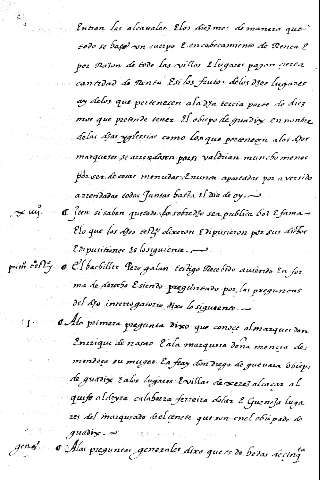 Entran las alcavalas. E los diezmos de manera que
todo se haze un cuerpo E encabeçamiento de Renta E
por Razon de todo las villas E lugares pagan cierta
cantidad de Renta E si los frutos de los dhos lugares
ay de los que pertenecen a la dha tercia parte de diez
mos que pretende tener El obispo de guadix en nombre
de las dhas yglesias como los que pertenecen a los dhos
marqueses se arrendasen valdrian mucho menos
por ser de cosas menudas E nunca apartados por averse
arrendadas todas Juntas hasta el dia de oy
Iten si saben que todo lo sobredho sea publica boz E fama
E lo que los dhos testigos dixeron E depusieron por sus dichos
E deposiciones Es lo siguiente
El bachiller Pero galan testigo Recebido aviendo En for
ma de derecho E siendo preguntado por las preguntas
del dho interrogatorio dixo lo siguiente
1. A la primera pregunta dixo que conoce al marques don
Enrriquez de E a la marquesa doña mencia de
mendoça su muger E a fray don diego de guevara obispo
de guadix E a los lugares E villas de xerez alcaçar al
quife aldeyra calahorra ferreira dolar E Gueneja luga
res del marquesado del cenete que son en el obispado de
guadix
A las preguntas generales dixo que es de hedad de